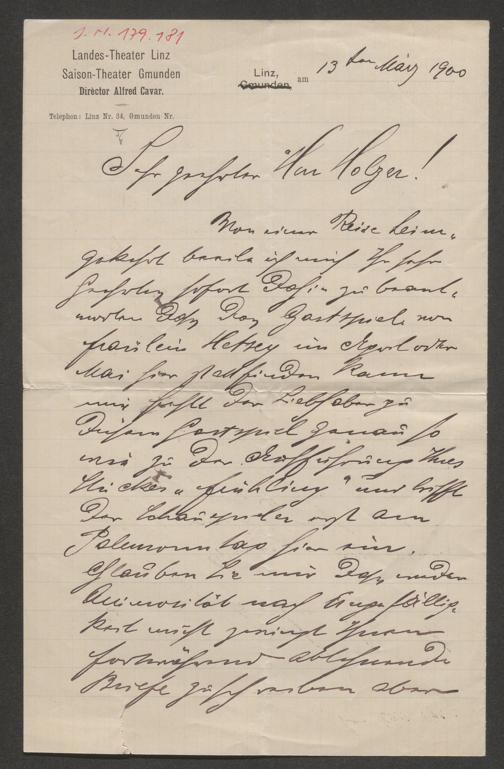 J.N. 179.181
Landes-Theater Linz
Saison-Theater Gmunden
Director Alfred Cavar.
Telephon: Linz Nr. 34, Gmunden Nr.
Linz,
Gmunden am 13ten März 1900
Sehr geehrter Herr Holzer!
Von einer Reise heim-
gekehrt beeile ich mich Ihr sehr
Geehrtes sofort dahin zu beant-
worten daß das Gastspiel von
Fräulein Hetsey im April oder
Mai hier stattfinden kann
mir fehlt der Liebhaber zu
diesem Gastspiel genau so
wie zu der Aufführung Ihres
Stückes „Frühling" und trifft
der Schauspieler erst am
Palmsonntag hier ein.
Glauben Sie mir daß weder
Animosität noch Ungefällig-
keit mich zwingt Ihnen
fortwährend ablehnende
Briefe zu schreiben aber